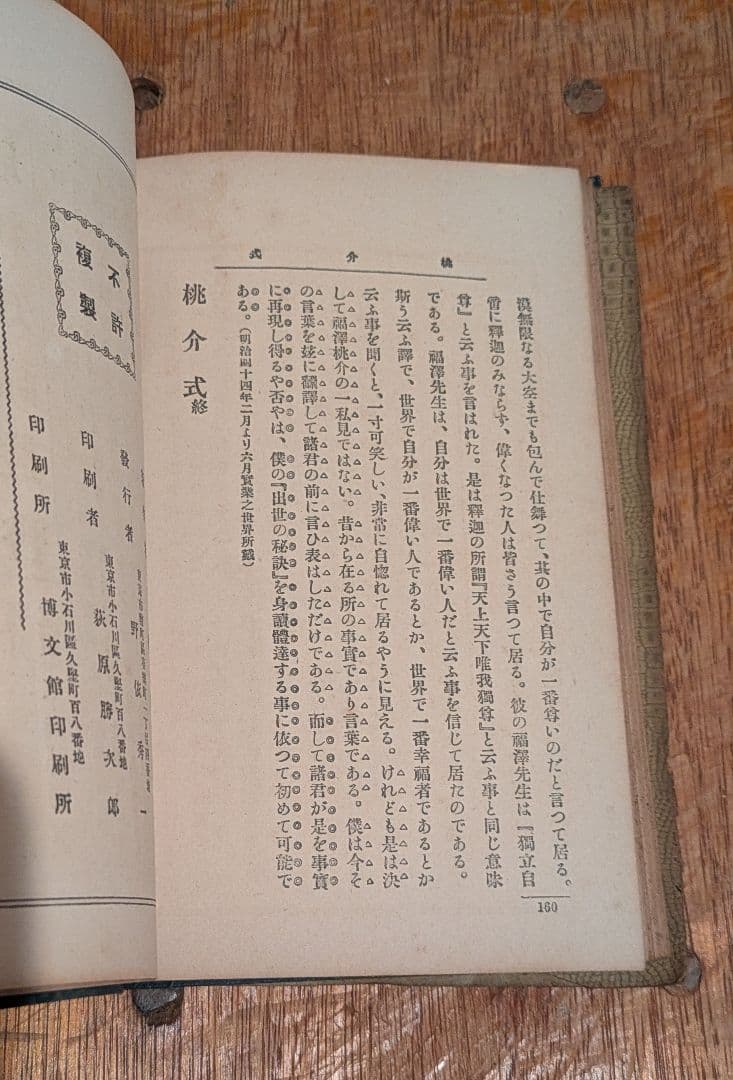 桃介式
漠無限なる大空までも包んで仕舞つて、其の中で自分が一番尊いのだと言つて居る。
啻に釋迦のみならず、偉くなつた人は皆さう言つて居る。彼の福澤先生は『獨立自
尊』と云ふ事を言はれた。是は釋迦の所謂『天上天下唯我獨尊』と云ふ事と同じ意味
である。福澤先生は、自分は世界で一番偉い人だと云ふ事を信じて居たのである。
斯う云ふ譯で、世界で自分が一番偉い人であるとか、世界で一番幸福者であるとか
云ふ事を聞くと、一寸可笑しい、非常に自惚れて居るやうに見える。けれども是は決
して福澤桃介の一私見ではない。昔から在る所の事實であり言葉である。僕は今そ
の言葉を玆に飜譯して諸君の前に言ひ表はしただけである。而して諸君が是を事實
に再現し得るや否やは、僕の『出世の秘訣』を身讀體達する事に依つて初めて可能で
ある。(明治四十四年二月より六月實業之世界所載)
桃介式 終
160
不許
複製
發行者
野依秀一
東京市小石川區久堅町百八番地
印刷者 荻原勝次郎
東京市小石川區久堅町百八番地
印刷所 博文館印刷所